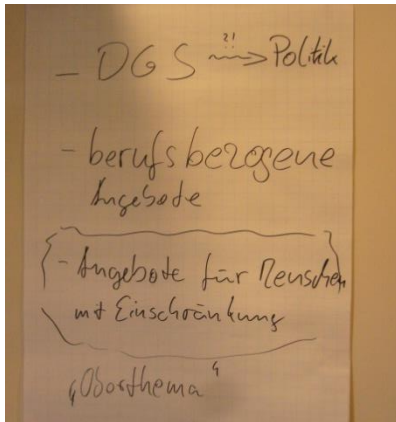 - DGS ?! ⟿ Politik
- berufsbezogene
Angebote
- Angebote für Menschen
mit Einschränkung
"Oberthema"